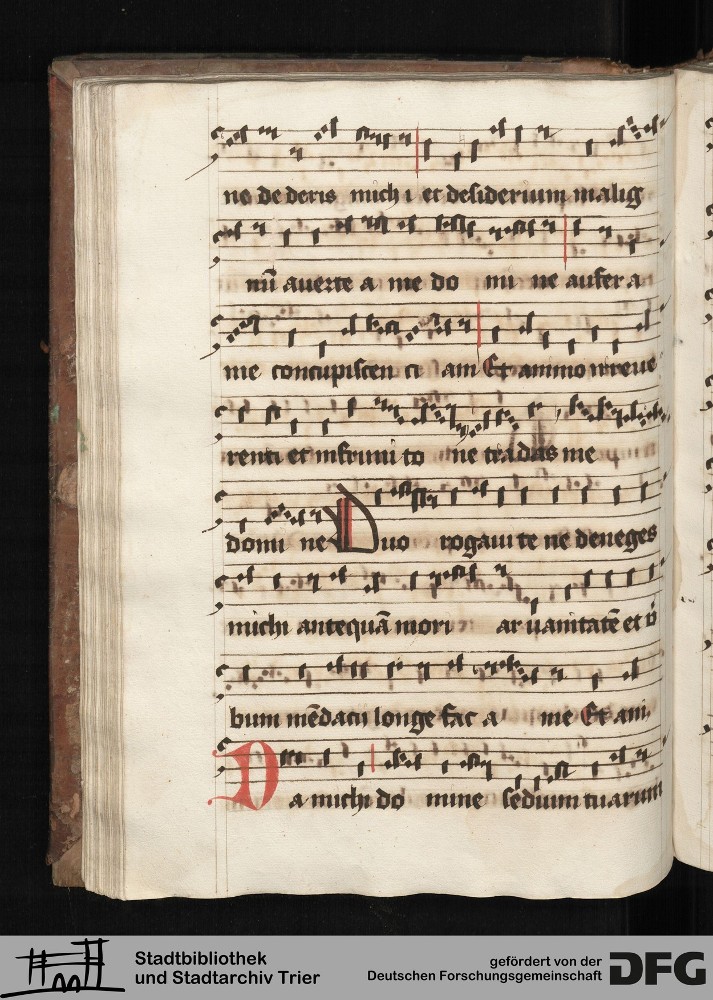 ne de deris mich i et desiderium malig
nū auerte a me do mi ne aufer a
me concupiscen ci am Et animo irreue
renti et infruni to ne tradas me
domi ne Duo rogaui te ne deneges
michi antequā mori ar uanitatē et ū
bum mēdacii longe fac a me Et ani
Da michi do mine sedium tuarum
Stadtbibliothek
und Stadtarchiv Trier
gefördert von der
Deutschen Forschungsgemeinschaft
DFG